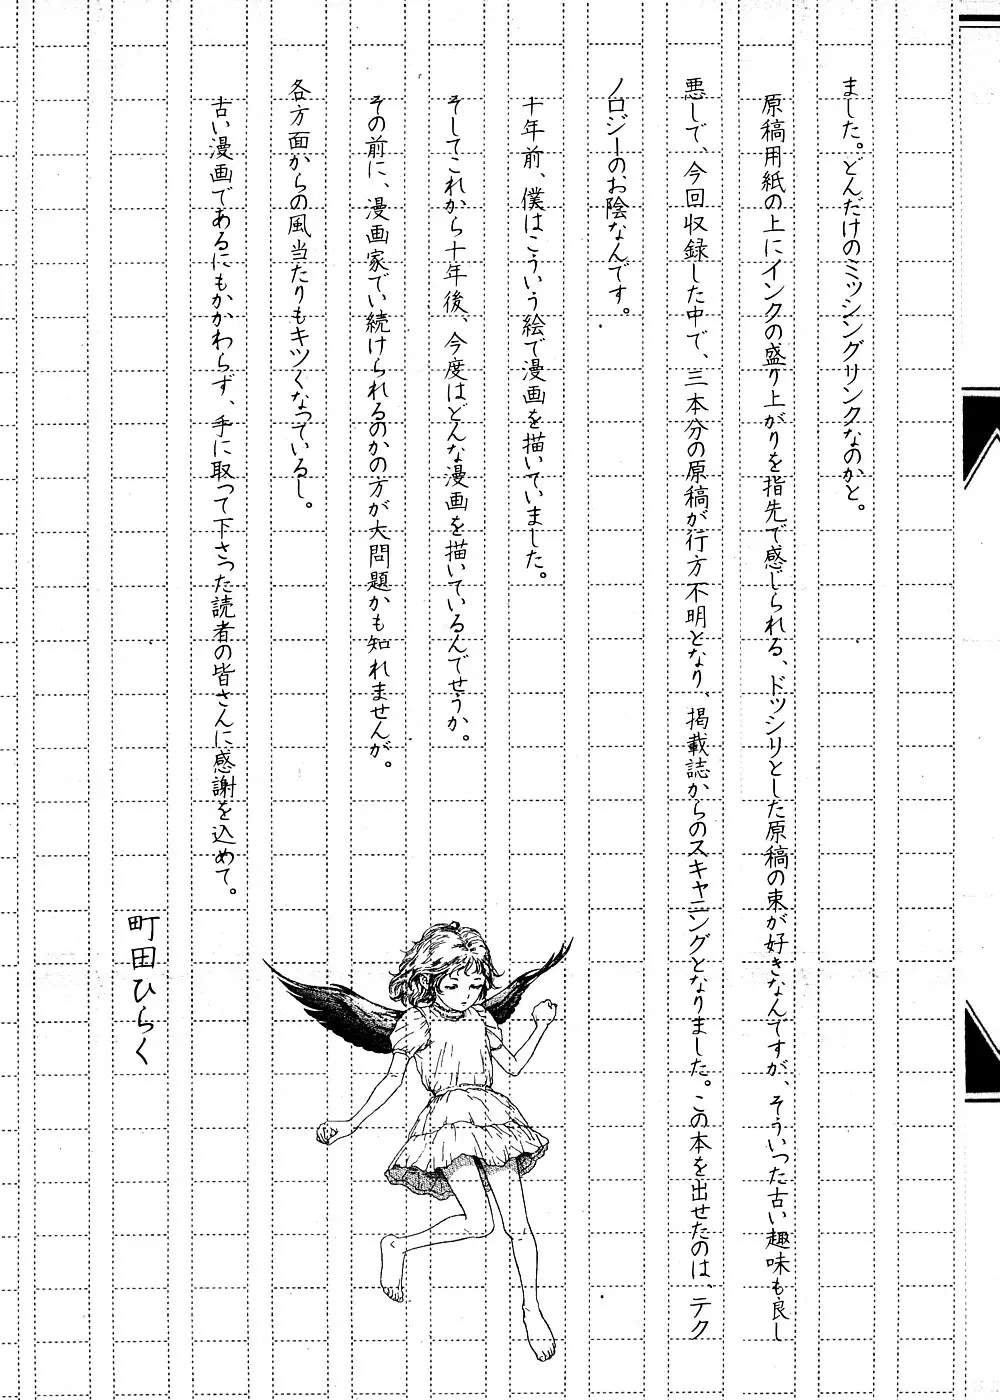 ました。どんだけのミッシングリンクなのかと。
原稿用紙の上にインクの盛り上がりを指先で感じられる、ドッシリとした原稿の束が好きなんですが、そういった古い趣味も良し
悪しで、今回収録した中で、三本分の原稿が行方不明となり、掲載誌からのスキャニングとなりました。この本を出せたのは、テク
ノロジーのお陰なんです。
十年前、僕はこういう絵で漫画を描いていました。
そしてこれから十年後、今度はどんな漫画を描いているんでせうか。
その前に、漫画家でい続けられるのかの方が大問題かも知れませんが。
各方面からの風当たりもキツくなっているし。
古い漫画であるにもかかわらず、手に取って下さった読者の皆さんに感謝を込めて。
町田ひらく